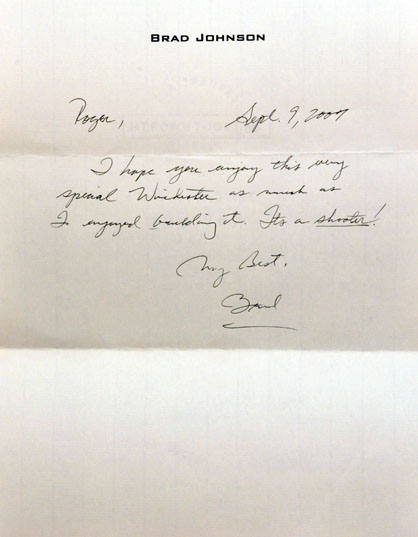 BRAD JOHNSON
Roger, Sept. 9, 2007
I hope you enjoy this very
special Winchester as much as
I enjoyed building it. Its a shooter!
My Best,
Brad